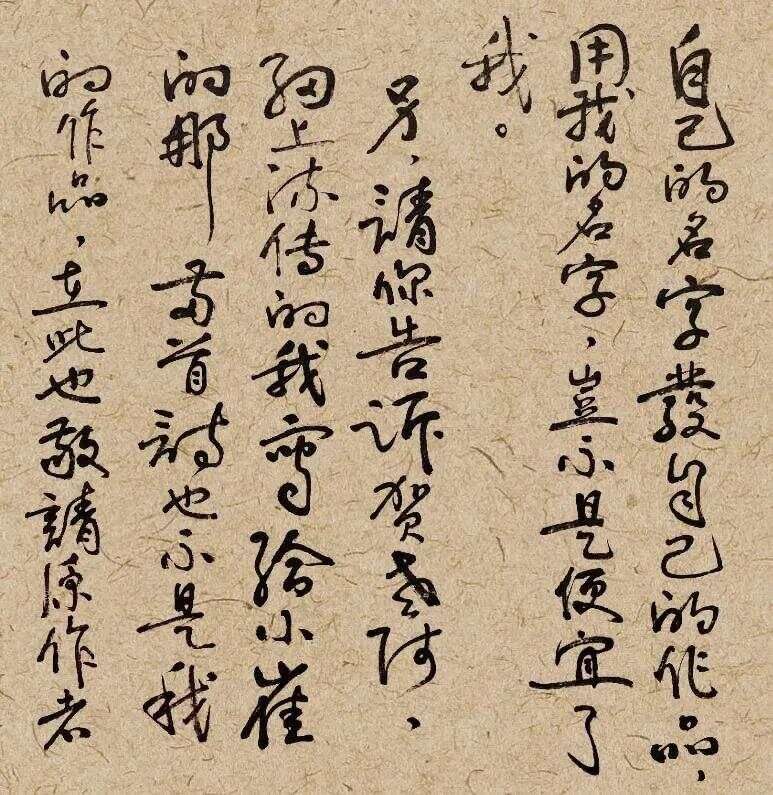 自己的名字發自己的作品，
用我的名字，豈不是便宜了
我。
另，請你告訴賀老師，
網上流傳的我寫給小崔
的那两首詩也不是我
的作品，在此也敬請原作者